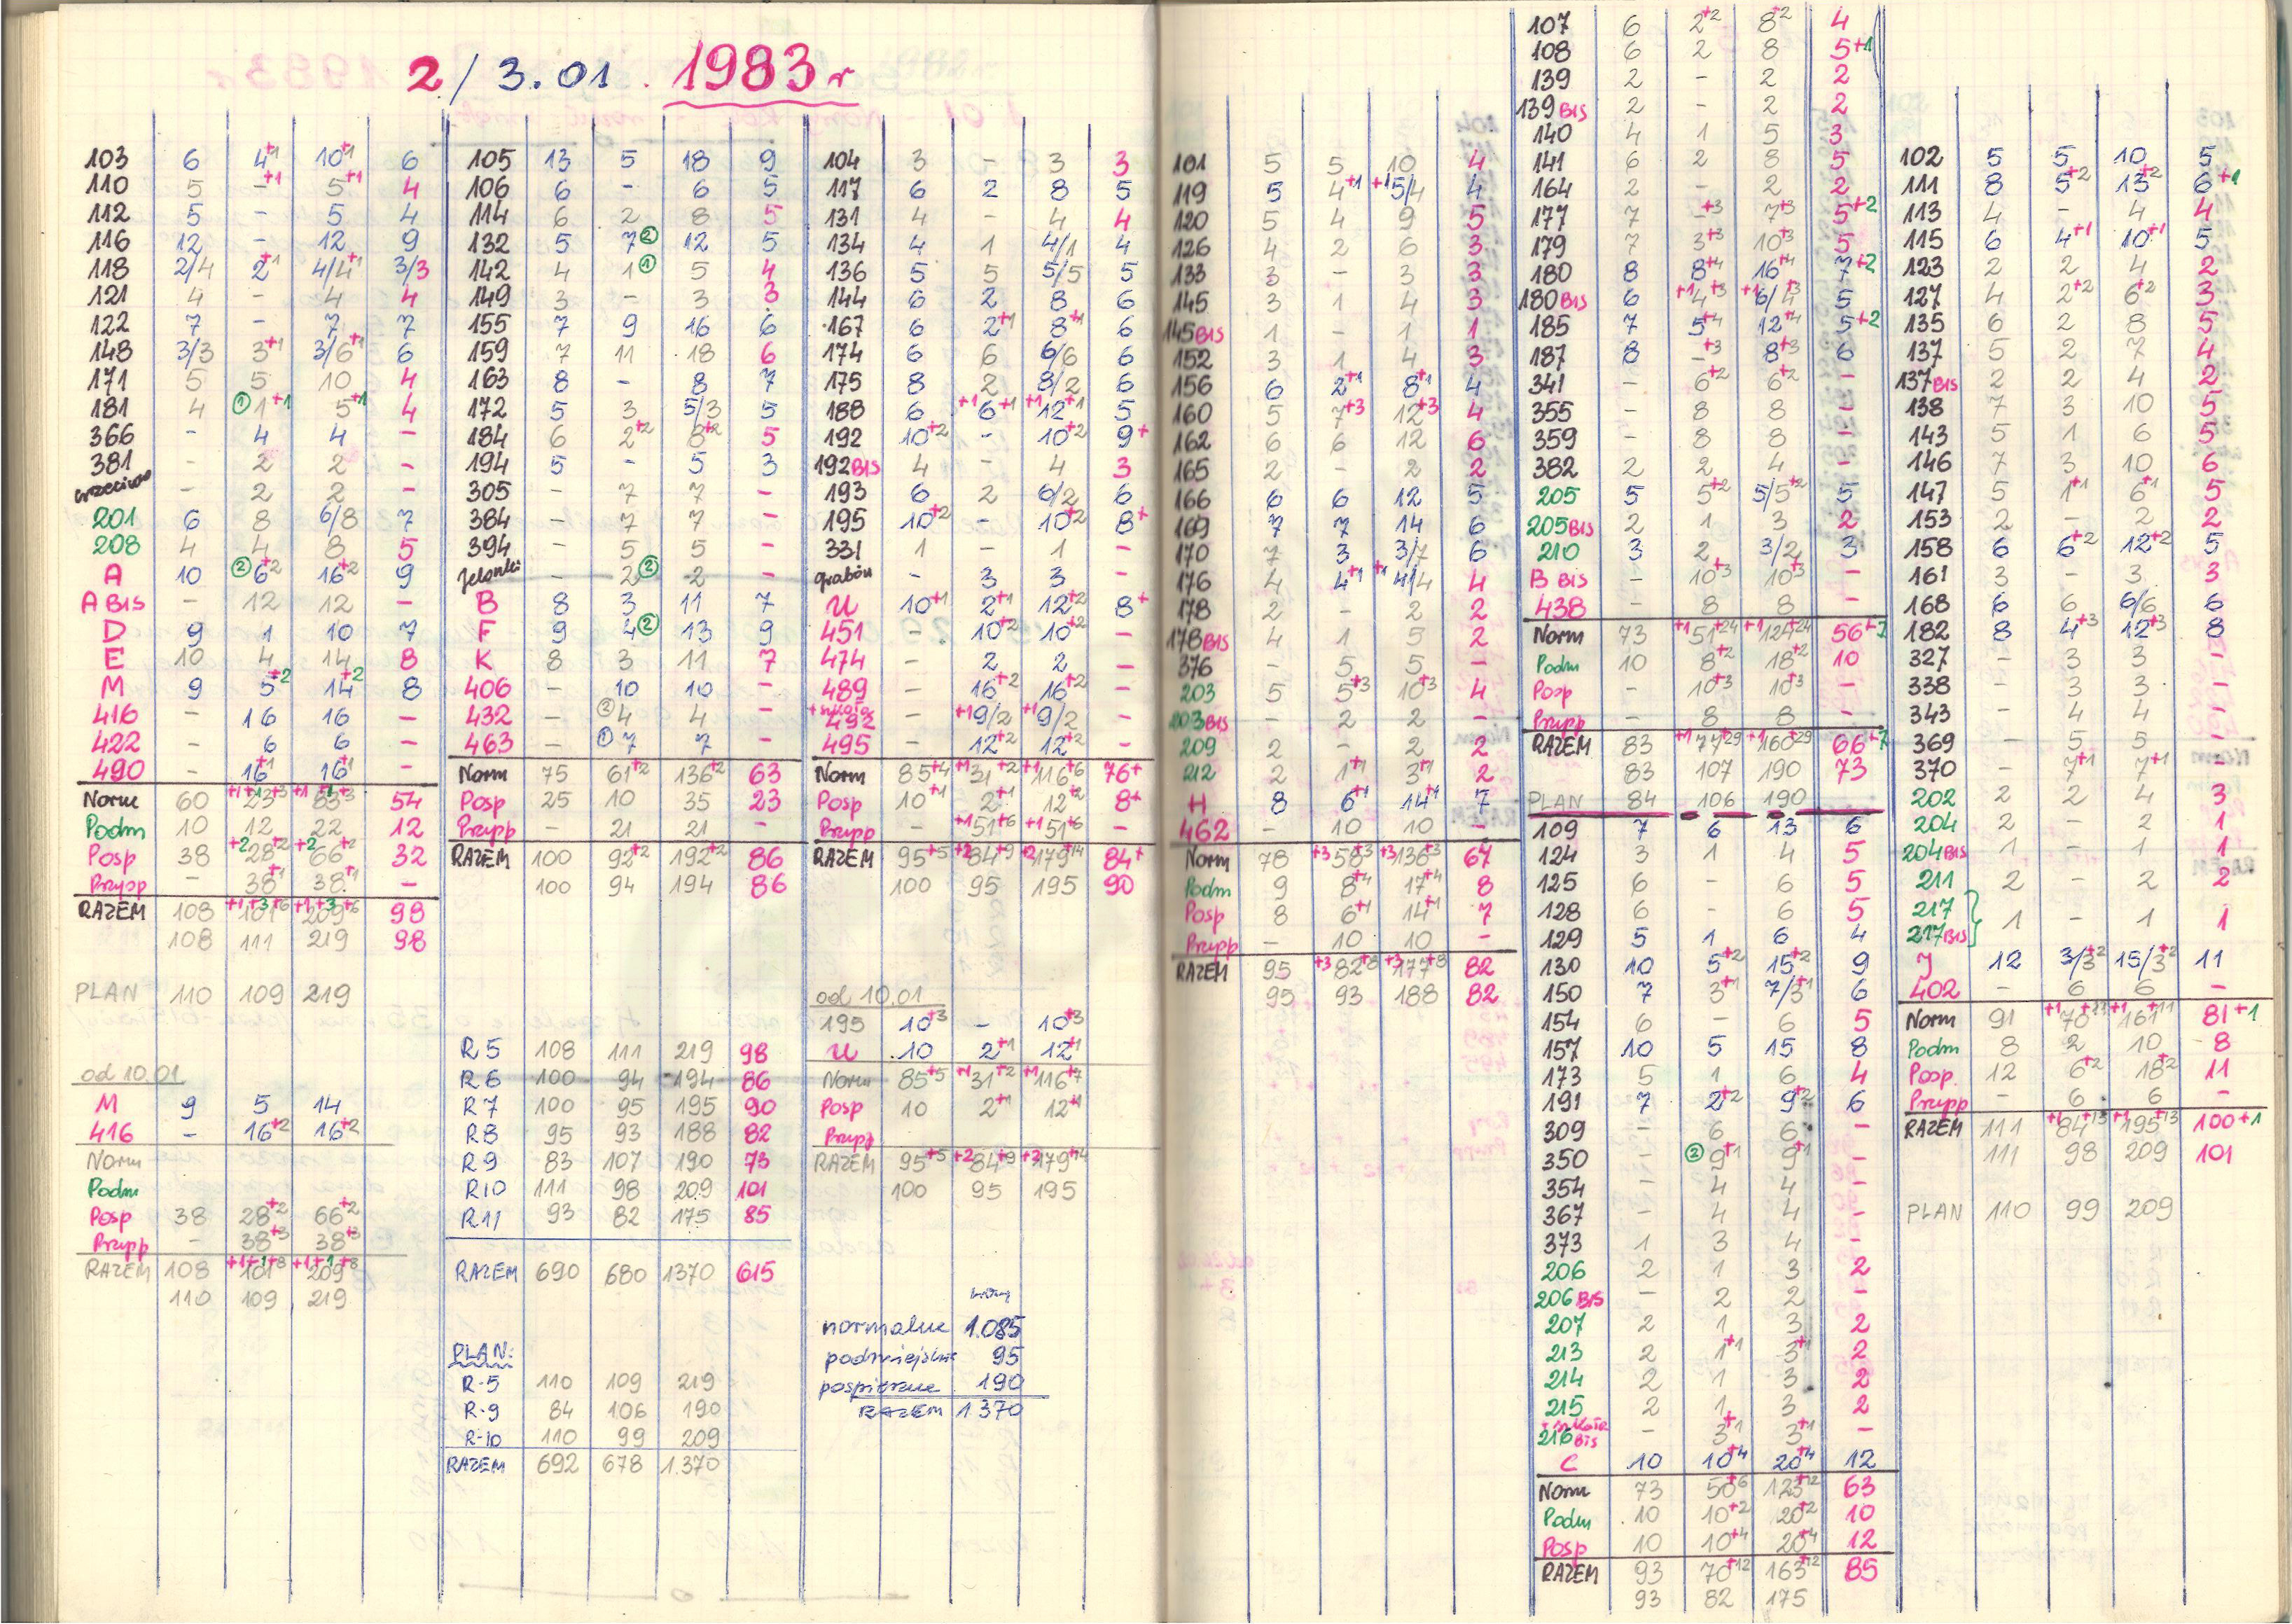 2/3.01. 1983r
103 6 4+1 10+1 6
110 5 -+1 5+1 4
112 5 - 5 4
116 12 - 12 9
118 2/4 2+1 4/4+1 3/3
121 4 - 4 4
122 7 - 7 7
148 3/3 3+1 3/6+1 6
171 5 5 10 4
181 4 ①1+1 5+1 4
366 - 4 4 -
381 - 2 2 -
- 2 2 -
201 6 8 6/8 7
208 4 4 8 5
A 10 ②6+2 16+2 9
A BIS - 12 12 -
D 9 1 10 7
E 10 4 14 8
M 9 5+2 14+2 8
416 - 16 16 -
422 - 6 6 -
490 - 16+1 16+1 -
Norm 60 +1+1 23+3 +1+1 83+3 54
Podm 10 12 22 12
Posp 38 +2 28+2 +2 66+2 32
Przysp - 38+1 38+1 -
RAZEM 108 +1+3 101+6 +1+3 209+6 98
108 111 219 98
PLAN 110 109 219
od 10.01
M 9 5 14
416 - 16+2 16+2
Norm
Podm
Posp 38 28+2 66+2
Przysp - 38+3 38+3
RAZEM 108 +1+1 101+8 +1+1 209+8
110 109 219
105 13 5 18 9
106 6 - 6 5
114 6 2 8 5
132 5 7② 12 5
142 4 1① 5 4
149 3 - 3 3
155 7 9 16 6
159 7 11 18 6
163 8 - 8 7
172 5 3 5/3 5
184 6 2+2 8+2 5
194 5 - 5 3
305 - 7 7 -
384 - 7 7 -
394 - 5 5 -
Jelonki - 2② 2 -
B 8 3 11 7
F 9 4② 13 9
K 8 3 11 7
406 - 10 10 -
432 - ②4 4 -
463 - ①7 7 -
Norm 75 61+2 136+2 63
Posp 25 10 35 23
Przysp - 21 21 -
RAZEM 100 92+2 192+2 86
100 94 194 86
R 5 108 111 219 98
R 6 100 94 194 86
R 7 100 95 195 90
R 8 95 93 188 82
R 9 83 107 190 73
R 10 111 98 209 101
R 11 93 82 175 85
RAZEM 690 680 1370 615
PLAN:
R-5 110 109 219
R-9 84 106 190
R-10 110 99 209
RAZEM 692 678 1.370
104 3 - 3 3
117 6 2 8 5
131 4 - 4 4
134 4 1 4/1 4
136 5 5 5/5 5
144 6 2 8 6
167 6 2+1 8+1 6
174 6 6 6/6 6
175 8 2 8/2 6
188 6 +1 6+1 +1 12+1 5
192 10+2 - 10+2 9+
192 BIS 4 - 4 3
193 6 2 6/2 6
195 10+2 - 10+2 8+
331 1 - 1 -
Grabów - 3 3 -
U 10+1 2+1 12+2 8+
451 - 10+2 10+2 -
474 - 2 2 -
489 - 16+2 16+2 -
492 - +1 9/2 +1 9/2 -
495 - 12+2 12+2 -
Norm 85+4 +1 31+2 +1 116+6 76+
Posp 10+1 2+1 12+2 8+
Przysp - +1 51+6 +1 51+6 -
RAZEM 95+5 +2 84+9 +2 179+14 84+
100 95 195 90
od 10.01
195 10+3 - 10+3
U 10 2+1 12+1
Norm 85+5 +1 31+2 +1 116+7
Posp 10 2+1 12+1
Przysp
RAZEM 95+5 +2 84+9 +2 179+14
100 95 195
normalne 1.085
podmiejskie 95
pospieszne 190
RAZEM 1.370
101 5 5 10 4
119 5 4+1 +1 5/4 4
120 5 4 9 5
126 4 2 6 3
133 3 - 3 3
145 3 1 4 3
145 BIS 1 - 1 1
152 3 1 4 3
156 6 2+1 8+1 4
160 5 7+3 12+3 4
162 6 6 12 6
165 2 - 2 2
166 6 6 12 5
169 7 7 14 6
170 7 3 3/7 6
176 4 4+1 +1 4/4 4
178 2 - 2 2
178 BIS 4 1 5 2
376 - 5 5 -
203 5 5+3 10+3 4
203 BIS - 2 2 -
209 2 - 2 2
212 2 1+1 3+1 2
H 8 6+1 14+1 7
462 - 10 10 -
Norm 78 +3 58+3 +3 136+3 67
Podm 9 8+4 17+4 8
Posp 8 6+1 14+1 7
Przysp - 10 10 -
RAZEM 95 +3 82+8 +3 177+8 82
95 93 188 82
107 6 2+2 8+2 4
108 6 2 8 5+1
139 2 - 2 2
139 BIS 2 - 2 2
140 4 1 5 3
141 6 2 8 5
164 2 - 2 2
177 7 -+3 7+3 5+2
179 7 3+3 10+3 5
180 8 8+4 16+4 7+2
180 BIS 6 +1 4+3 +1 6/4+3 5
185 7 5+4 12+4 5+2
187 8 -+3 8+3 6
341 - 6+2 6+2 -
355 - 8 8 -
359 - 8 8 -
382 2 2 4 -
205 5 5+2 5/5+2 5
205 BIS 2 1 3 2
210 3 2 3/2 3
B BIS - 10+3 10+3 -
438 - 8 8 -
Norm 73 +1 51+24 +1 124+24 56+7
Podm 10 8+2 18+2 10
Posp - 10+3 10+3 -
Przysp - 8 8 -
RAZEM 83 +1 77+29 +1 160+29 66+7
83 107 190 73
PLAN 84 106 190
109 7 6 13 6
124 3 1 4 5
125 6 - 6 5
128 6 - 6 5
129 5 1 6 4
130 10 5+2 15+2 9
150 7 3+1 7/3+1 6
154 6 - 6 5
157 10 5 15 8
173 5 1 6 4
191 7 2+2 9+2 6
309 - 6 6 -
350 - ②9+1 9+1 -
354 - 4 4 -
367 - 4 4 -
373 1 3 4 -
206 2 1 3 2
206 BIS - 2 2 -
207 2 1 3 2
213 2 1+1 3+1 2
214 2 1 3 2
215 2 1 3 2
216 BIS - 3+1 3+1 -
C 10 10+4 20+4 12
Norm 73 50+6 123+12 63
Podm 10 10+2 20+2 10
Posp 10 10+4 20+4 12
RAZEM 93 70+12 163+12 85
93 82 175
102 5 5 10 5
111 8 5+2 13+2 6+1
113 4 - 4 4
115 6 4+1 10+1 5
123 2 2 4 2
127 4 2+2 6+2 3
135 6 2 8 5
137 5 2 7 4
137 BIS 2 2 4 2
138 7 3 10 5
143 5 1 6 5
146 7 3 10 6
147 5 1+1 6+1 5
153 2 - 2 2
158 6 6+2 12+2 5
161 3 - 3 3
168 6 6 6/6 6
182 8 4+3 12+3 8
327 - 3 3 -
338 - 3 3 -
343 - 4 4 -
369 - 5 5 -
370 - 7+1 7+1 -
202 2 2 4 3
204 2 - 2 1
204 BIS 1 - 1 1
211 2 - 2 2
217
217 BIS } 1 - 1 1
J 12 3/3+2 15/3+2 11
402 - 6 6 -
Norm 91 +1 70+11 +1 161+11 81+1
Podm 8 2 10 8
Posp. 12 6+2 18+2 11
Przysp - 6 6 -
RAZEM 111 +1 84+13 +1 195+13 100+1
111 98 209 101
PLAN 110 99 209